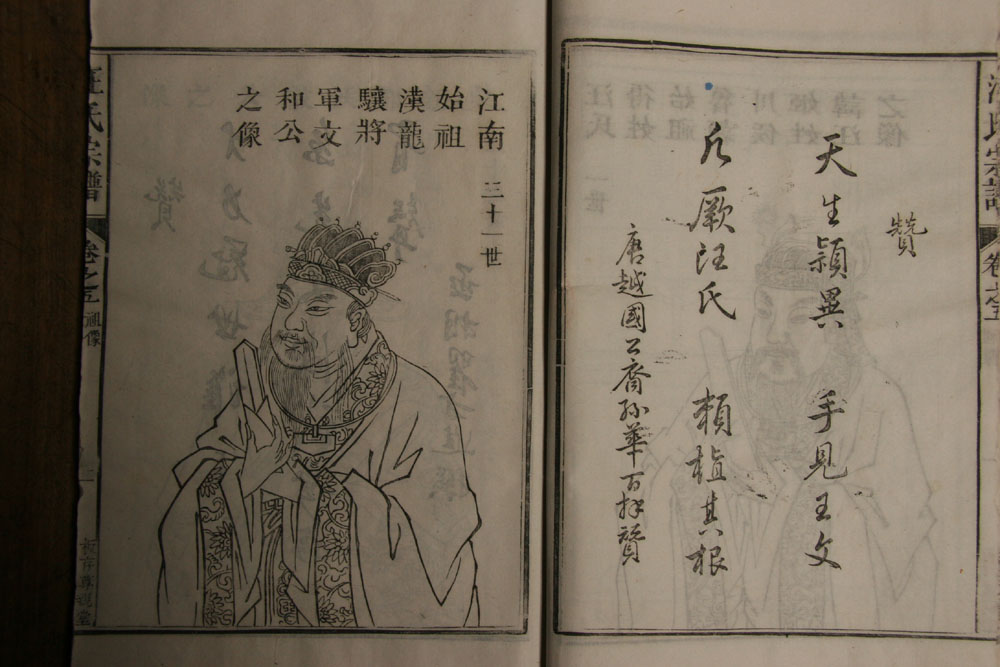 贊
天生颖異 手見王文
凡厥汪氏 頼植其根
唐越國公裔孫華百拜贊
江南
始祖
漢龍
驤將
軍文
和公
之像
三十一世
汪氏宗譜 卷之五 祖像